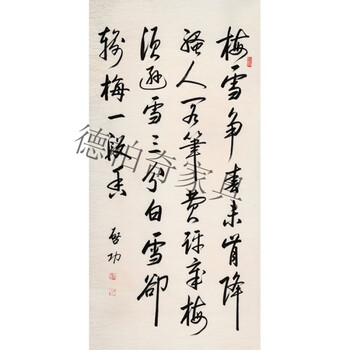 梅雪争春未肯降
騷人阁筆费评章梅
须遜雪三分白雪卻
输梅一段香
啓功
德泊奇家具